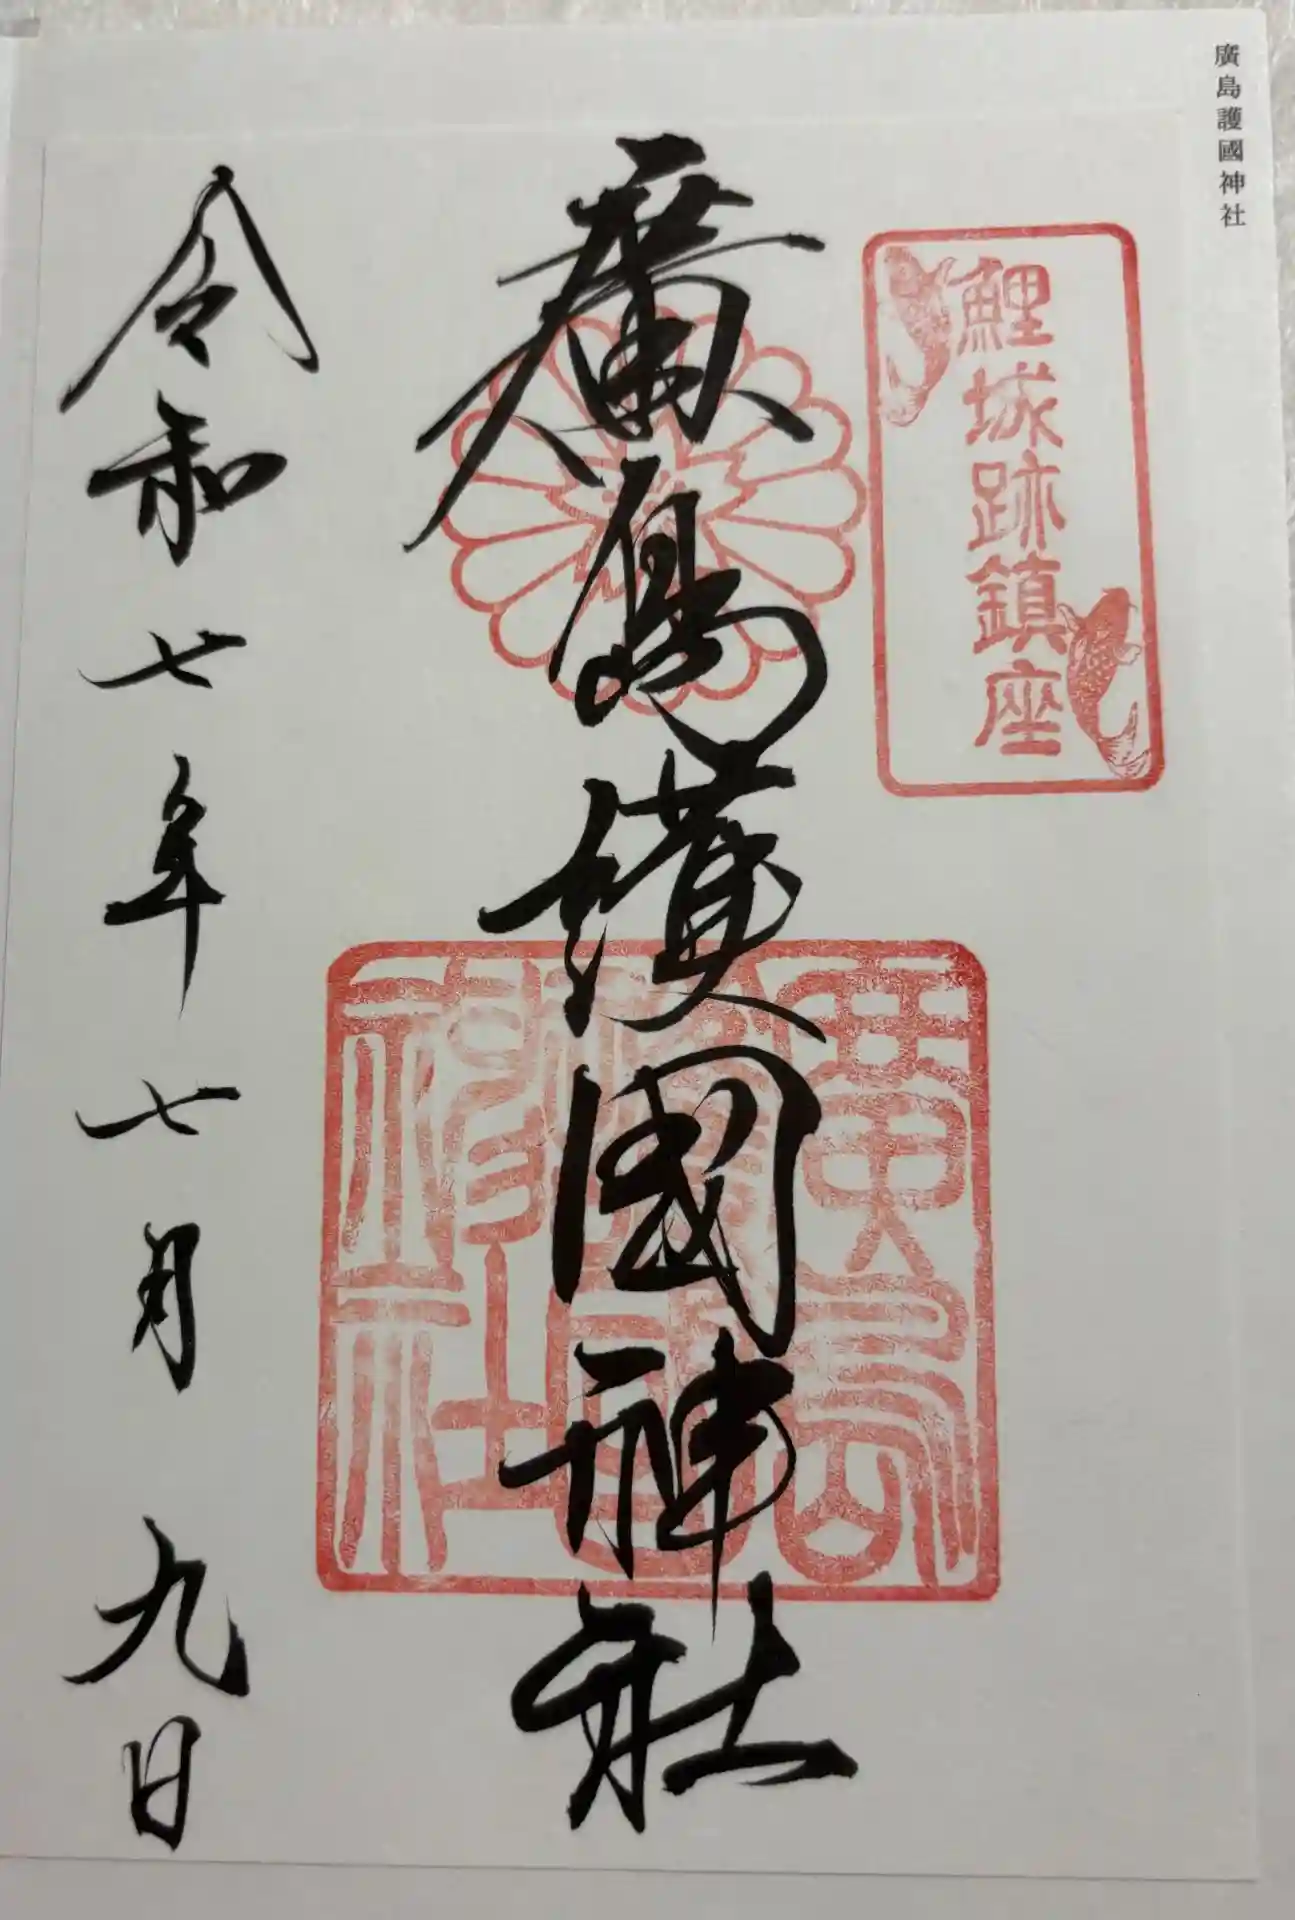 廣島護國神社
鯉城跡鎮座
廣島護國神社
廣島
護國
神社
令和七年七月九日